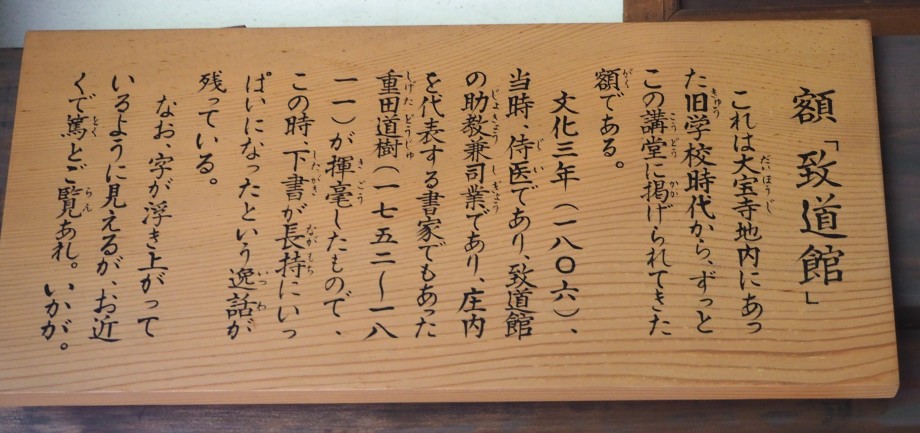 額「致道館」
これは大宝寺地内にあっ
た旧学校時代から、ずっと
この講堂に掲げられてきた
額である。
文化三年(一八〇六)、
当時、侍医であり、致道館
の助教兼司業であり、庄内
を代表する書家でもあった
重田道樹(一七五二〜一八
一一)が揮毫したもので、
この時、下書が長持にいっ
ぱいになったという逸話が
残っている。
なお、字が浮き上がって
いるように見えるが、お近
くで篤とご覧あれ。いかが。